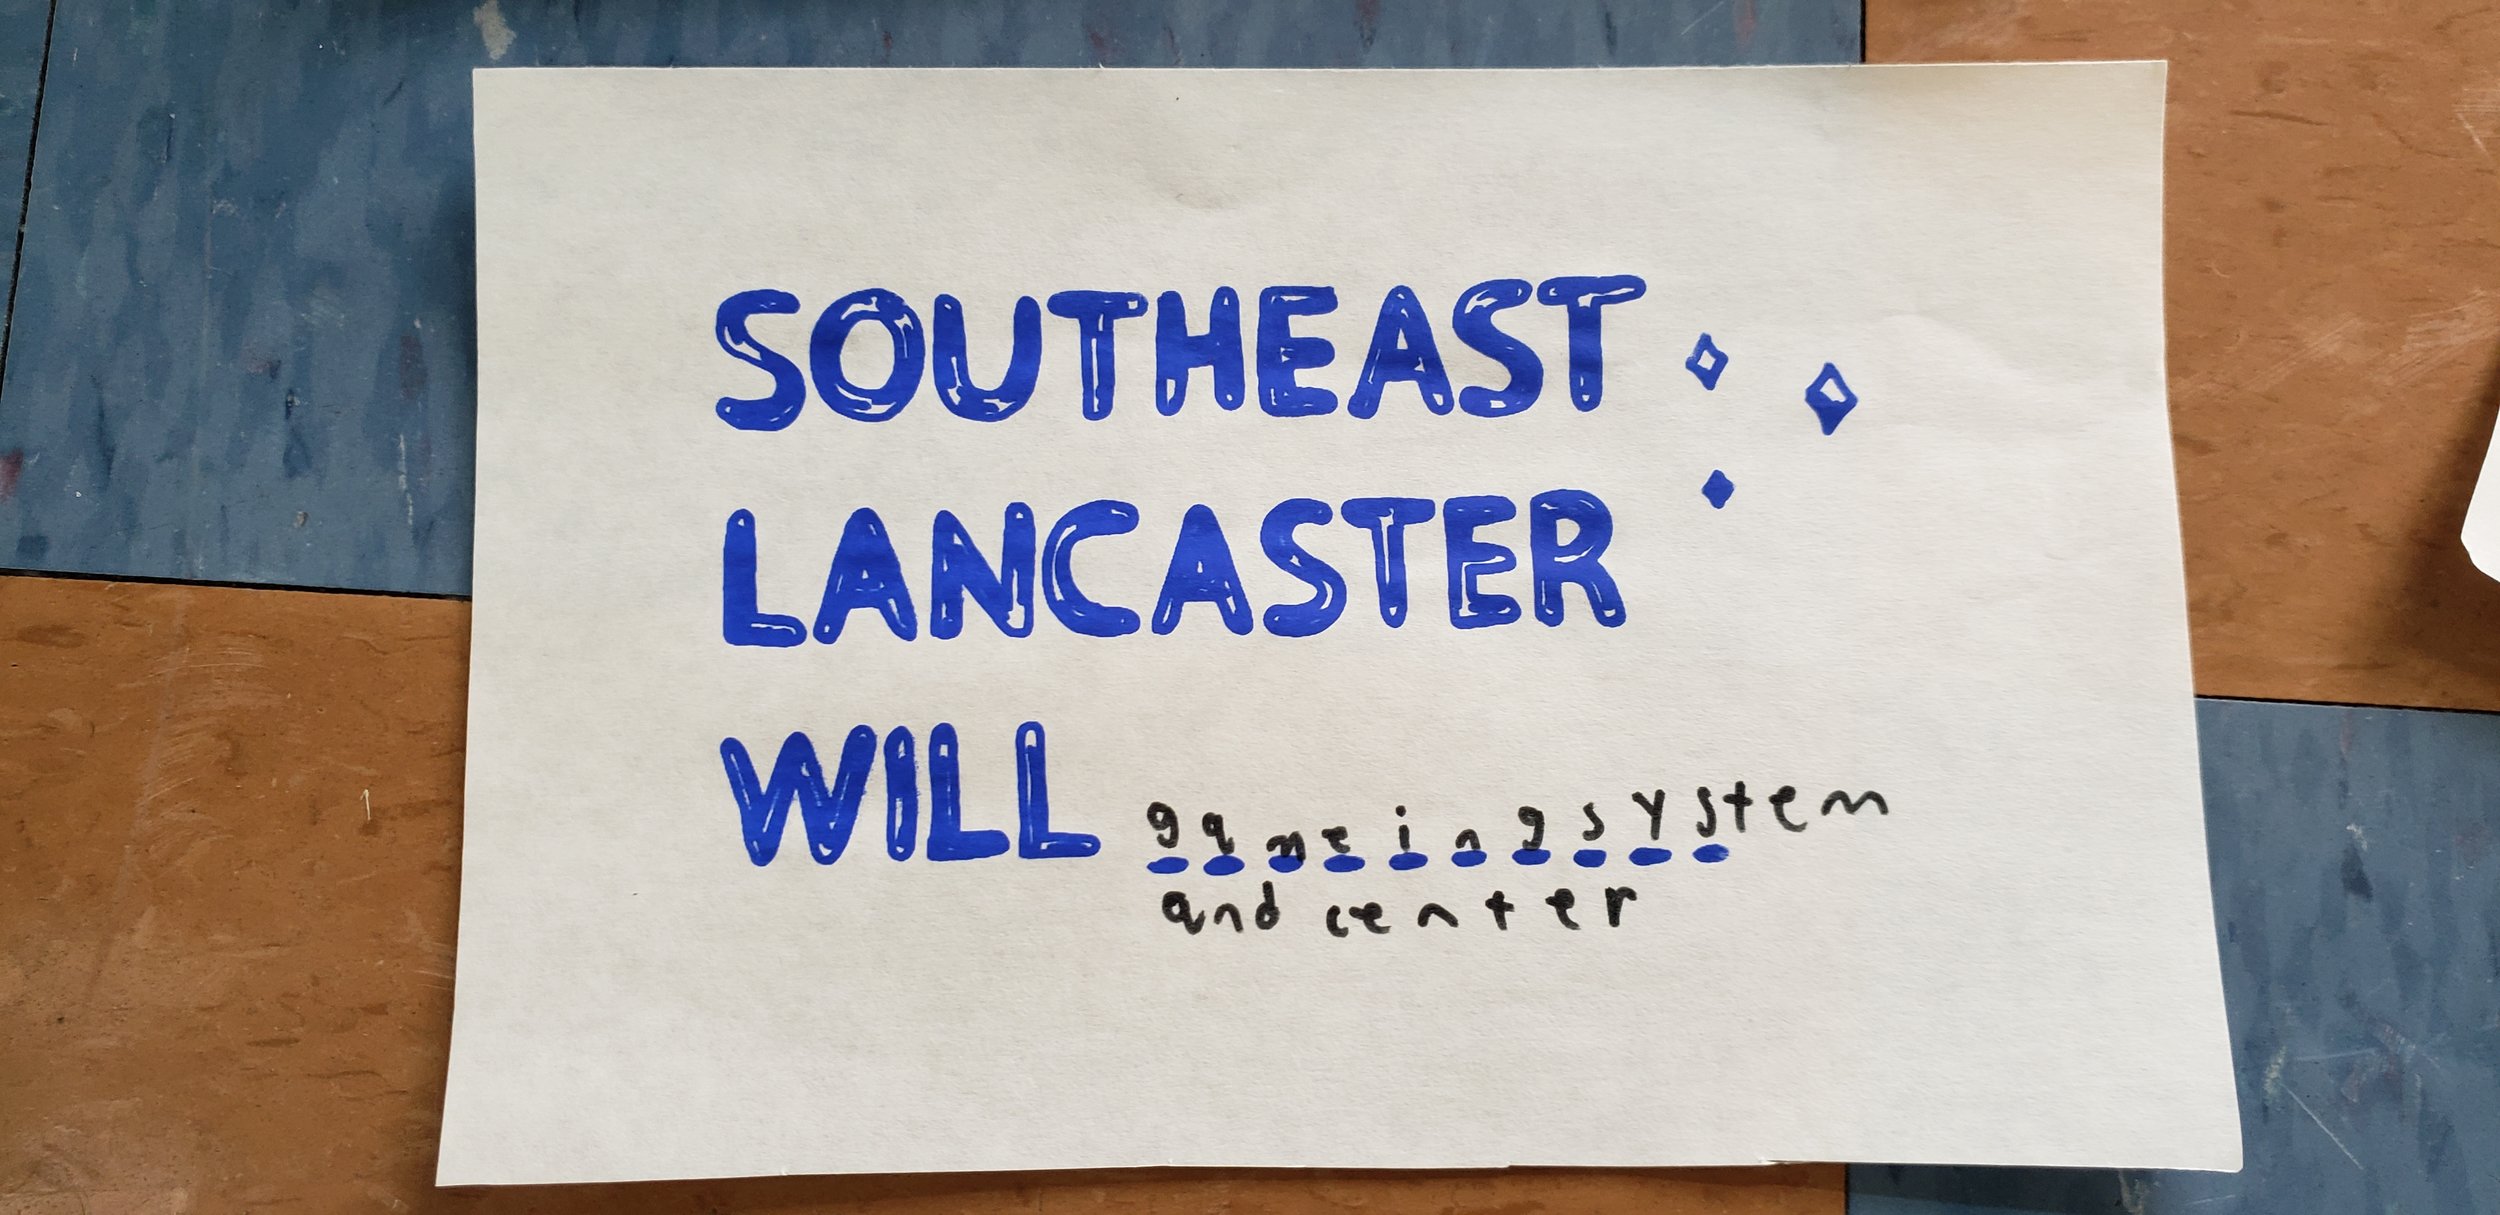 SOUTHEAST
LANCASTER
WILL gameingsystem
and center